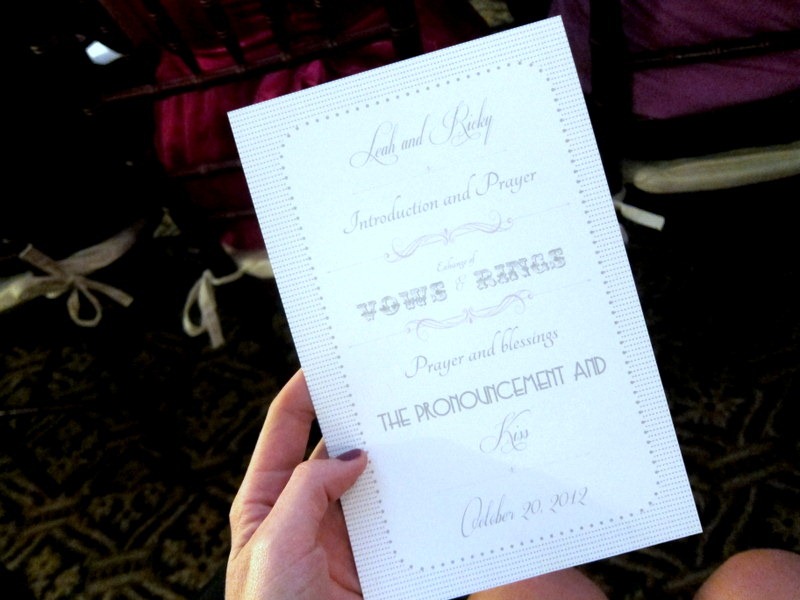 Leah and Ricky
Introduction and Prayer
Exchange of
VOWS & RINGS
Prayer and blessings
THE PRONOUNCEMENT AND
Kiss
October 20, 2012